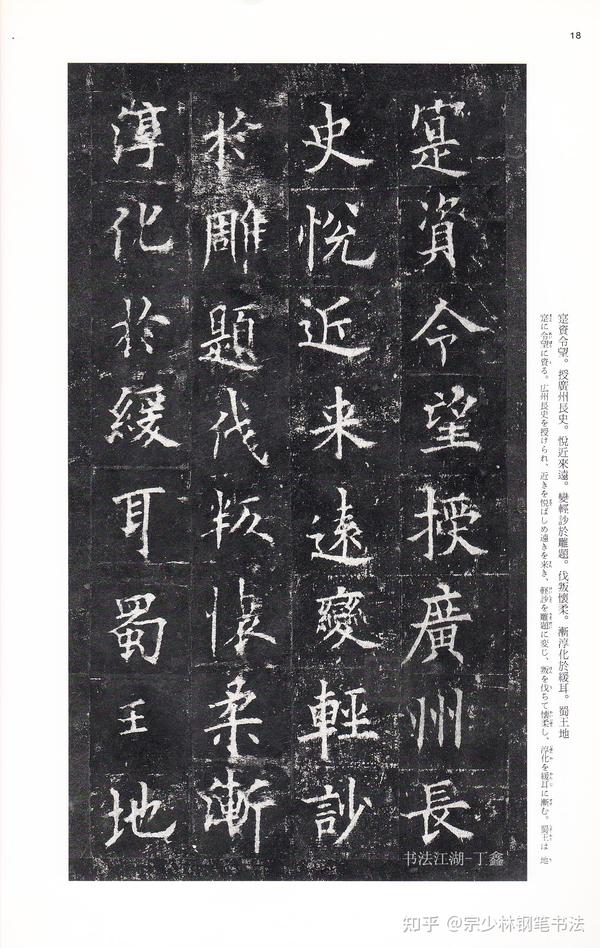 18
寔資令望授廣州長
史悅近来遠變輕訬
於雕題伐叛懷柔漸
淳化於緩耳蜀王地
寔資令望。授廣州長史。悅近來遠。變輕訬於雕題。伐叛懷柔。漸淳化於緩耳。蜀王地
寔に令望に資る。広州長史を授けられ、近きを悦ばしめ遠きを来き、軽訬を雕題に変じ、叛を伐ちて懐柔し、淳化を緩耳に漸む。蜀王は地
书法江湖-丁鑫
知乎 @宗少林钢笔书法